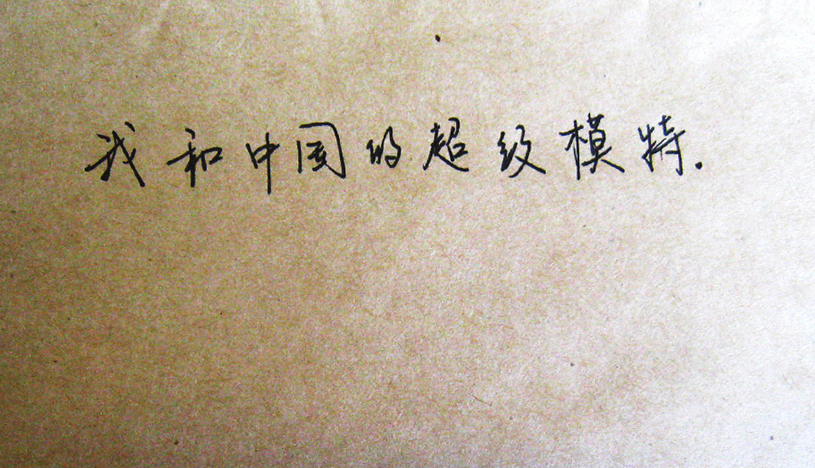 我和中国的超级模特.